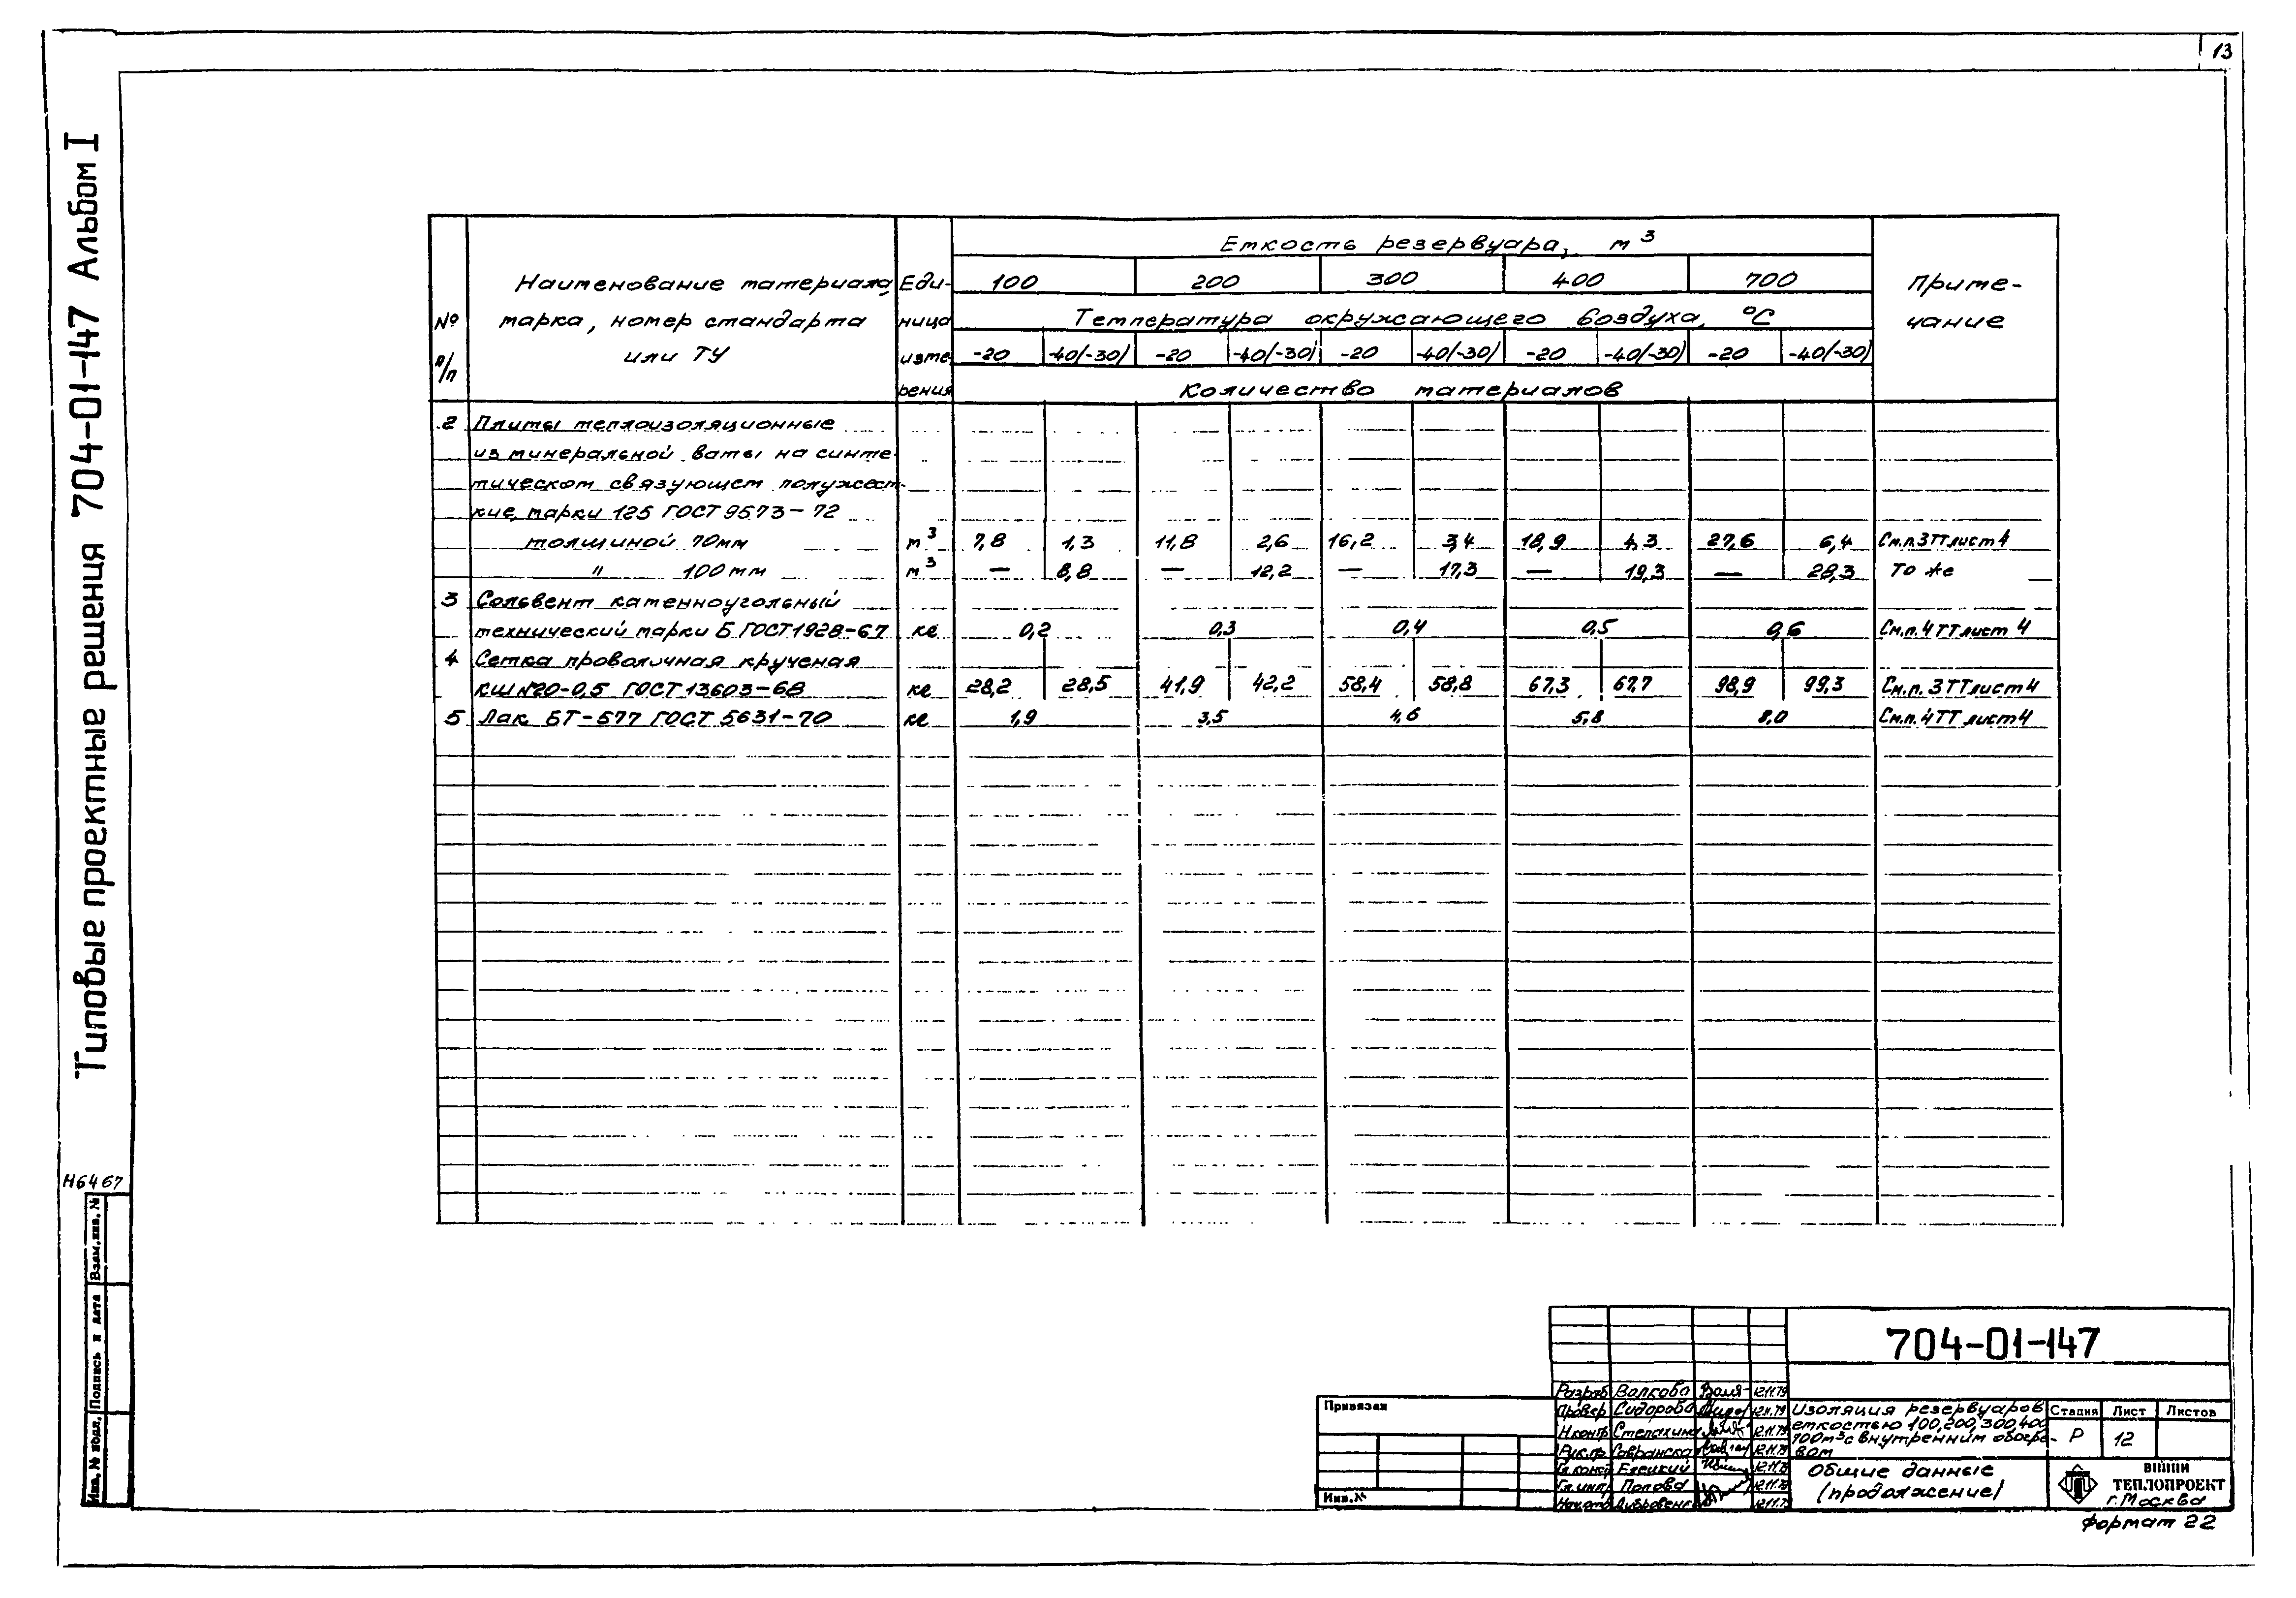 13
Типовые проектные решения 704-01-147 Альбом I
Н6467
Взам. инв. №
Подпись и дата
Инв. № подл.
№ п/п
Наименование материала, марка, номер стандарта или ТУ
Единица измерения
Емкость резервуара, м³
Примечание
100 200 300 400 700
Температура окружающего воздуха, °С
-20 -40(-30) -20 -40(-30) -20 -40(-30) -20 -40(-30) -20 -40(-30)
Количество материалов
2 Плиты теплоизоляционные
из минеральной ваты на синте-
тическом связующем полужест-
кие марки 125 ГОСТ 9573-72
толщиной 70мм м³ 7,8 1,3 11,8 2,6 16,2 3,4 18,9 4,3 27,6 6,4 См.п.3ТТ лист 4
" 100мм м³ — 8,8 — 12,2 — 17,3 — 19,3 — 28,3 То же
3 Сольвент каменноугольный
технический марки Б ГОСТ 1928-67 кг 0,2 0,3 0,4 0,5 0,6 См.п.4 ТТ лист 4
4 Сетка проволочная крученая
КШ №20-0,5 ГОСТ 13603-68 кг 28,2 28,5 41,9 42,2 58,4 58,8 67,3 67,7 98,9 99,3 См.п.3 ТТ лист 4
5 Лак БТ-577 ГОСТ 5631-70 кг 1,9 3,5 4,6 5,8 8,0 См.п.4 ТТ лист 4
704-01-147
Привязан
Инв.№
Разраб Волкова 12.11.79
Провер Сидорова 12.11.79
Н.контр Степахина 12.11.79
Рук.гр. 12.11.79
Гл.конст Елецкий
Гл.инж Попова
Нач.отд
Изоляция резервуаров
емкостью 100,200,300,400
700м³ с внутренним обогре-
вом
Стадия Лист Листов
Р 12
Общие данные
(продолжение)
ВНИПИ
ТЕПЛОПРОЕКТ
г. Москва
Формат 22